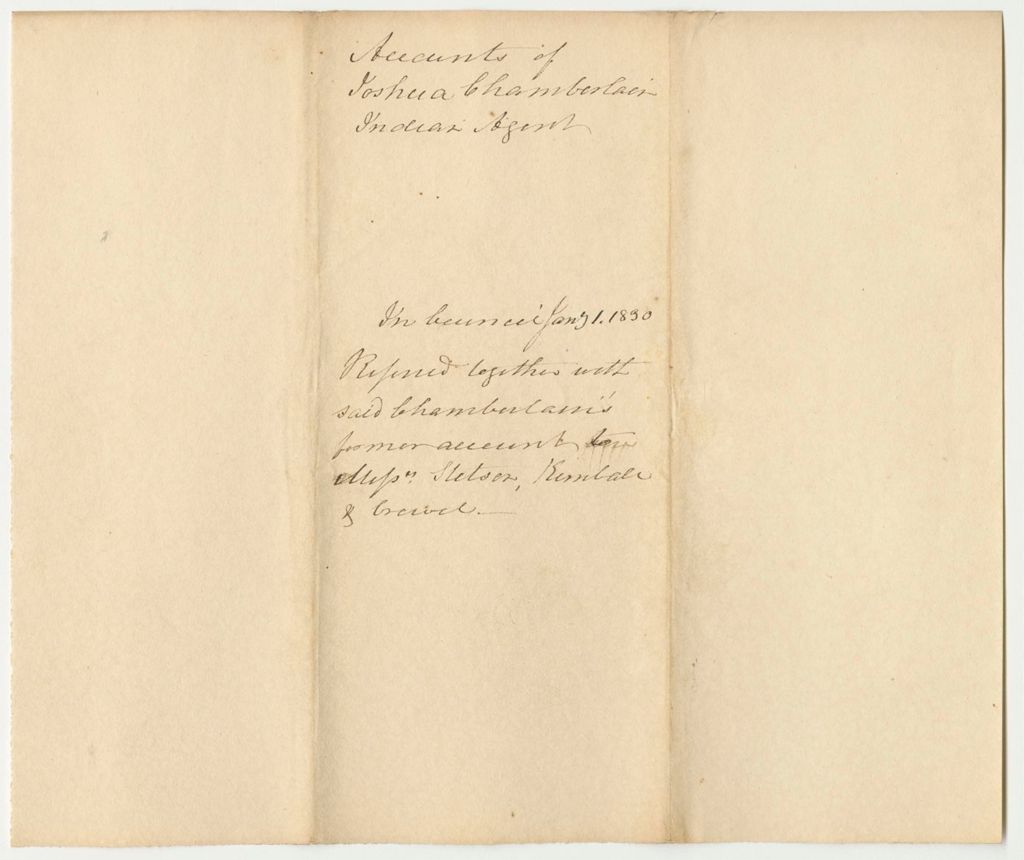 Accounts of
Joshua Chamberlain
Indian Agent
In Council Jany 1. 1830
Referred together with
said Chamberlain's
former account to
Messrs. Stetson, Kimball
&